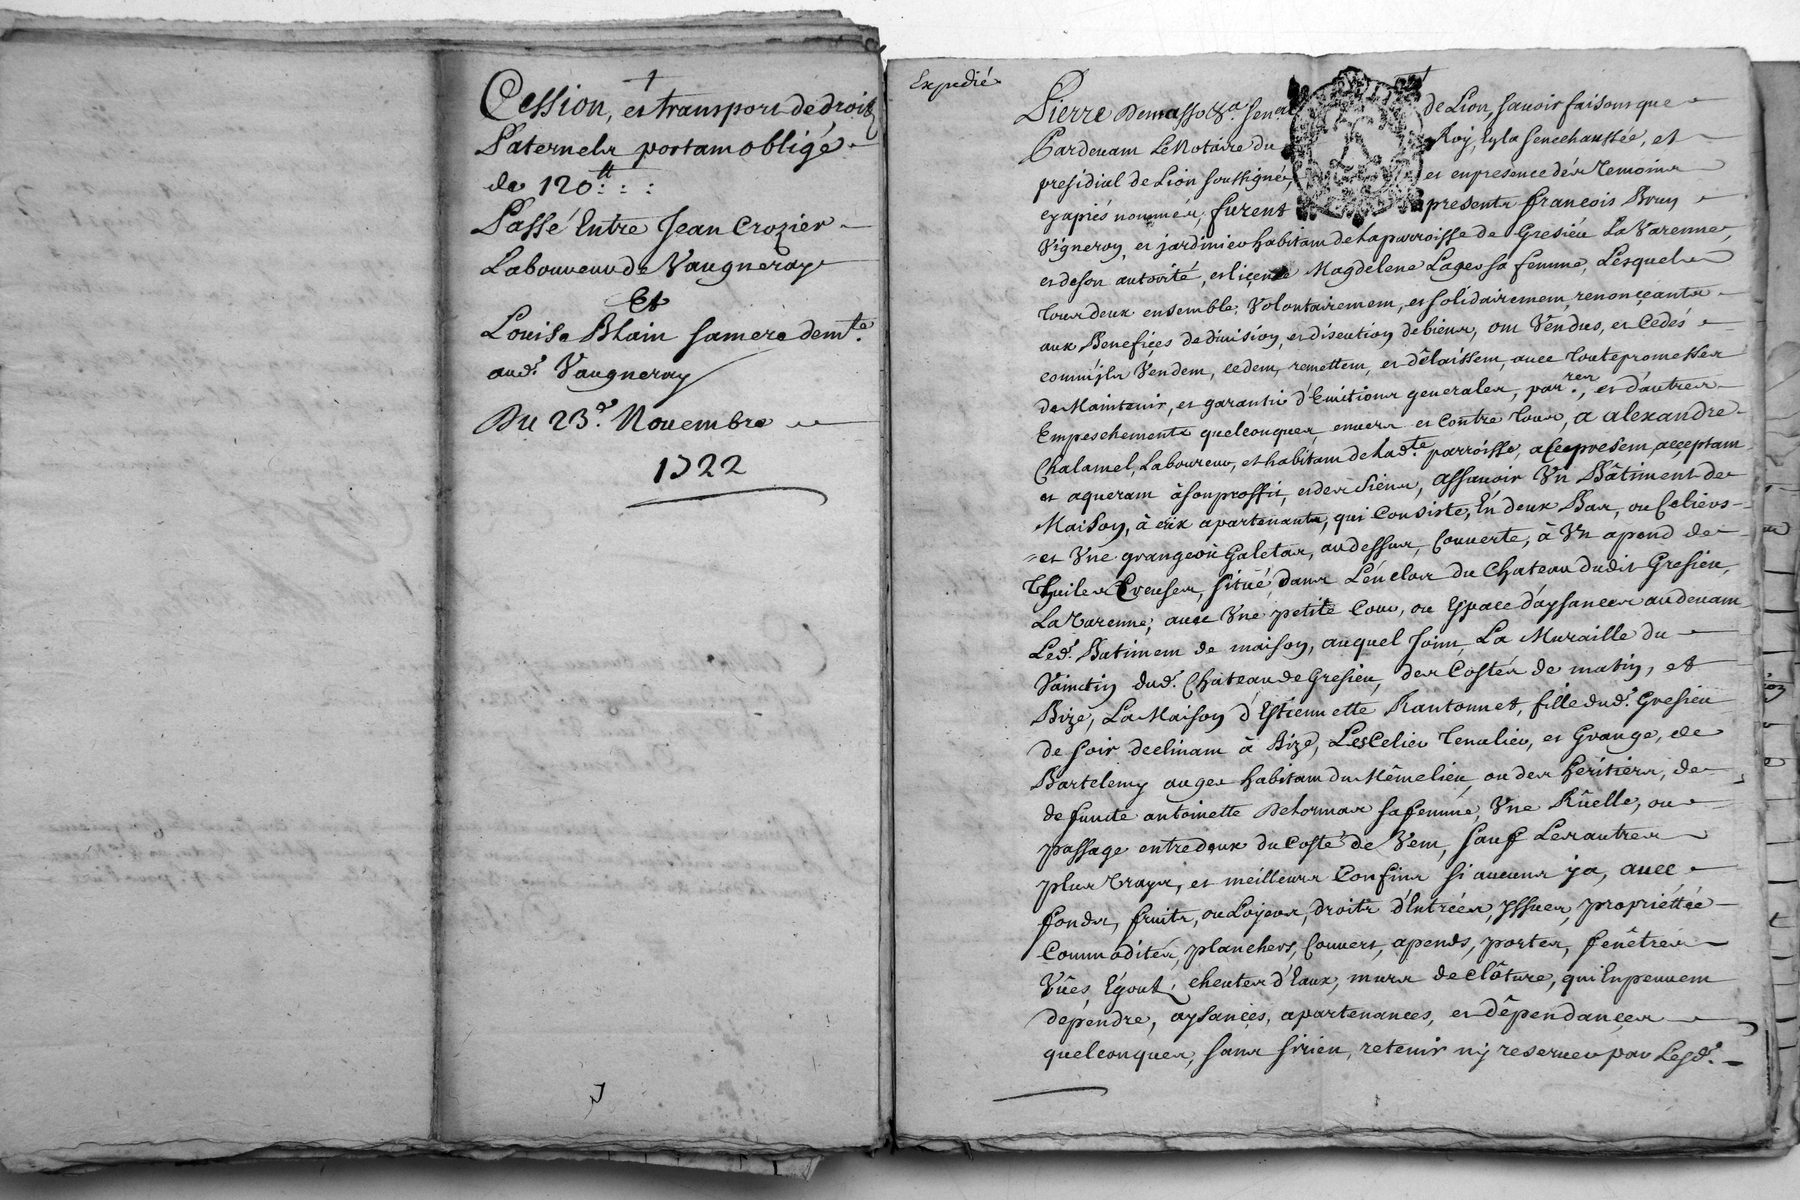 Cession, et transport de droitz
Paternelz portant obligé
de 120ᵗᵗ : :
Passé Entre Jean Crozier
Laboureur de Vaugneray
Et
Louise Blain sa mere demᵗᵉ
audᵗ Vaugneray
Du 23ᵉ Novembre
1722
Expedié
Pierre de Lion, scavoir faisons que
Pardevant Le Notaire du Roy, En la Senechaussée, et
presidial de Lion soussigné, et en presence des Temoins
cy aprés nommés, furent presents francois Brun
Vigneron, et jardinier habitant de la parroisse de Gresieu La Varenne,
et de son autorité, et licence Magdelene Lager sa femme, Lesquels
tous deux ensemble, Volontairement, et solidairement, renonçeants
aux Benefices de division, et discution de biens, ont Vendus, et Cedés
comm'ils Vendent, cedent, remettent, et délaissent, avec toute promesses
de Maintenir, et garantir d'Evictions generales, et d'autres
Empeschements quelconques, envers et contre tous, a alexandre
Chalamel, Laboureur, et habitant de ladᵗᵉ parroisse, a Ce present, acceptant
et aquerant à son proffit, et des siens, assavoir Un Bâtiment de
Maison, à eux apartenants, qui Consiste, En deux Bas, ou Celiers
et Une grange où Galetas, au dessus, Couverte, à Un apend de
Thuiles Creuses, situé, dans L'énclos du Chateau dudit Gresieu,
La Varenne, avec Une petite Cour, ou Espace d'aysances au devant
Ledᵗ Batiment de maison, auquel Joint, La Muraille du
Vaintin dudᵗ Chateau de Gresieu, des Costés de matin, et
Bize, La Maison d'Estiennette Rantonnet, fille dudᵗ Gresieu
de soir declinant à Bize, Les Celier tenalier, et Grange, de
Bartelemy auger habitant du Même lieu, ou des heritiers, de
defuncte antoinette Delormas sa femme, Une Rüelle, ou
passage entredeux du Costé de Vent, sauf Les autres
plus Vrays, et meilleurs Confins si aucuns ÿa, avec
fonds, fruits, ou Loyers, droits d'Entrées, Yssues, propriettée
Commodités, planchers, Couvert, apends, portes, fenêtres
Vûes, Egout, cheutes d'Eaux, murs de clôture, qui En peuvent
dépendre, aysances, apartenances, et dépendances
quelconques, sans si rien, retenir nÿ reserver par Lesdᵗ